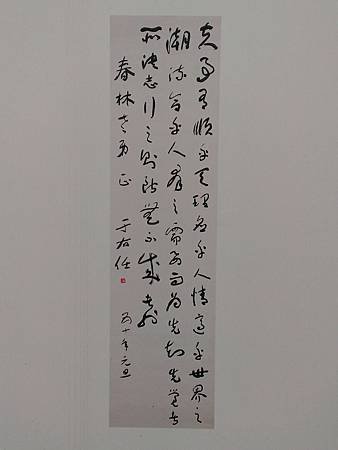 夫事有順乎天理應乎人情適乎世界之
潮流合乎人群之需要而為先知先覺者
所決志行之則斷無不成者也
春林老弟 正
于右任
五十年元旦